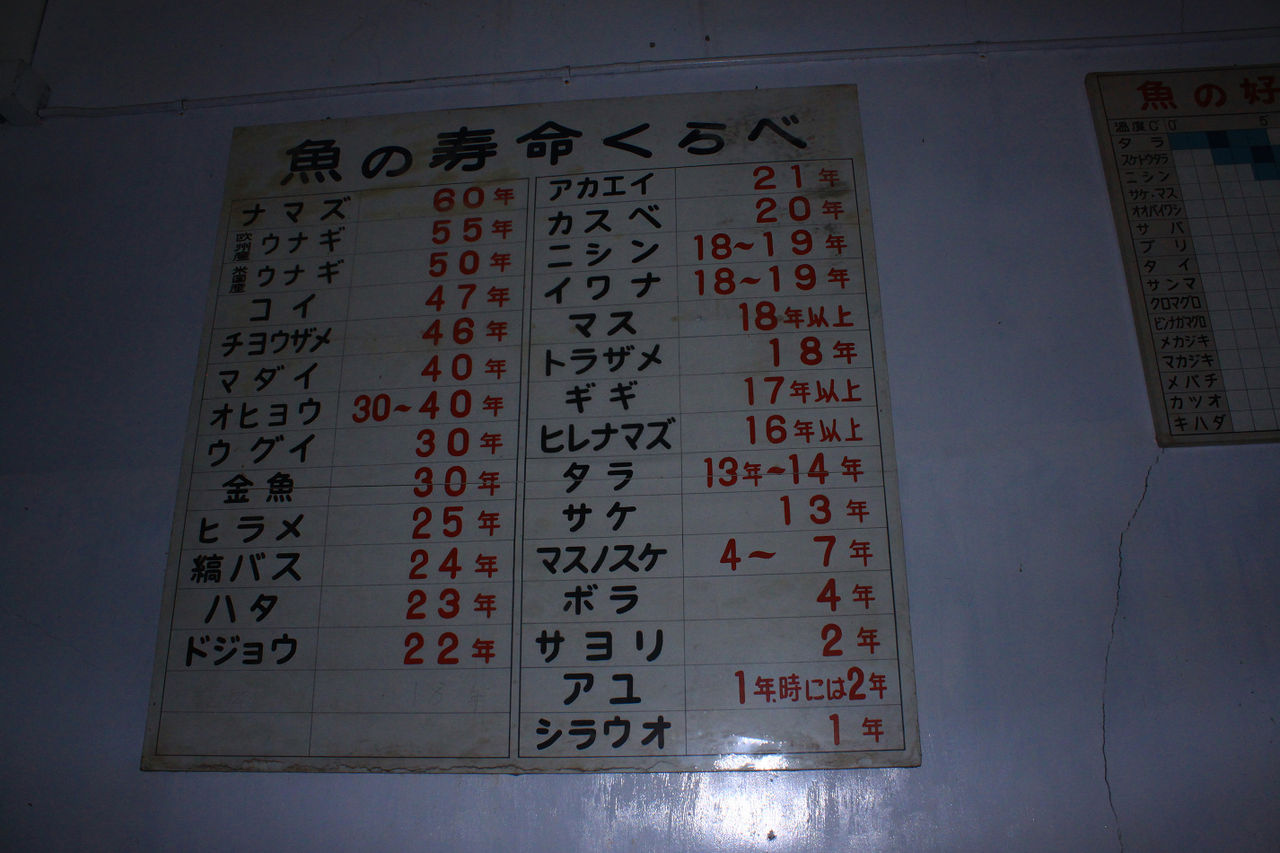 魚の寿命くらべ
ナマズ 60年
欧州産ウナギ 55年
米国産ウナギ 50年
コイ 47年
チヨウザメ 46年
マダイ 40年
オヒヨウ 30~40年
ウグイ 30年
金魚 30年
ヒラメ 25年
縞バス 24年
ハタ 23年
ドジョウ 22年
アカエイ 21年
カスベ 20年
ニシン 18~19年
イワナ 18~19年
マス 18年以上
トラザメ 18年
ギギ 17年以上
ヒレナマズ 16年以上
タラ 13年~14年
サケ 13年
マスノスケ 4~7年
ボラ 4年
サヨリ 2年
アユ 1年.時には2年
シラウオ 1年
魚の好
温度C 0° 5
タラ
スケトウタラ
ニシン
サケ、マス
オオバイワシ
サバ
ブリ
タイ
サンマ
クロマグロ
ビンナガマグロ
メカジキ
マカジキ
メバチ
カツオ
キハダ